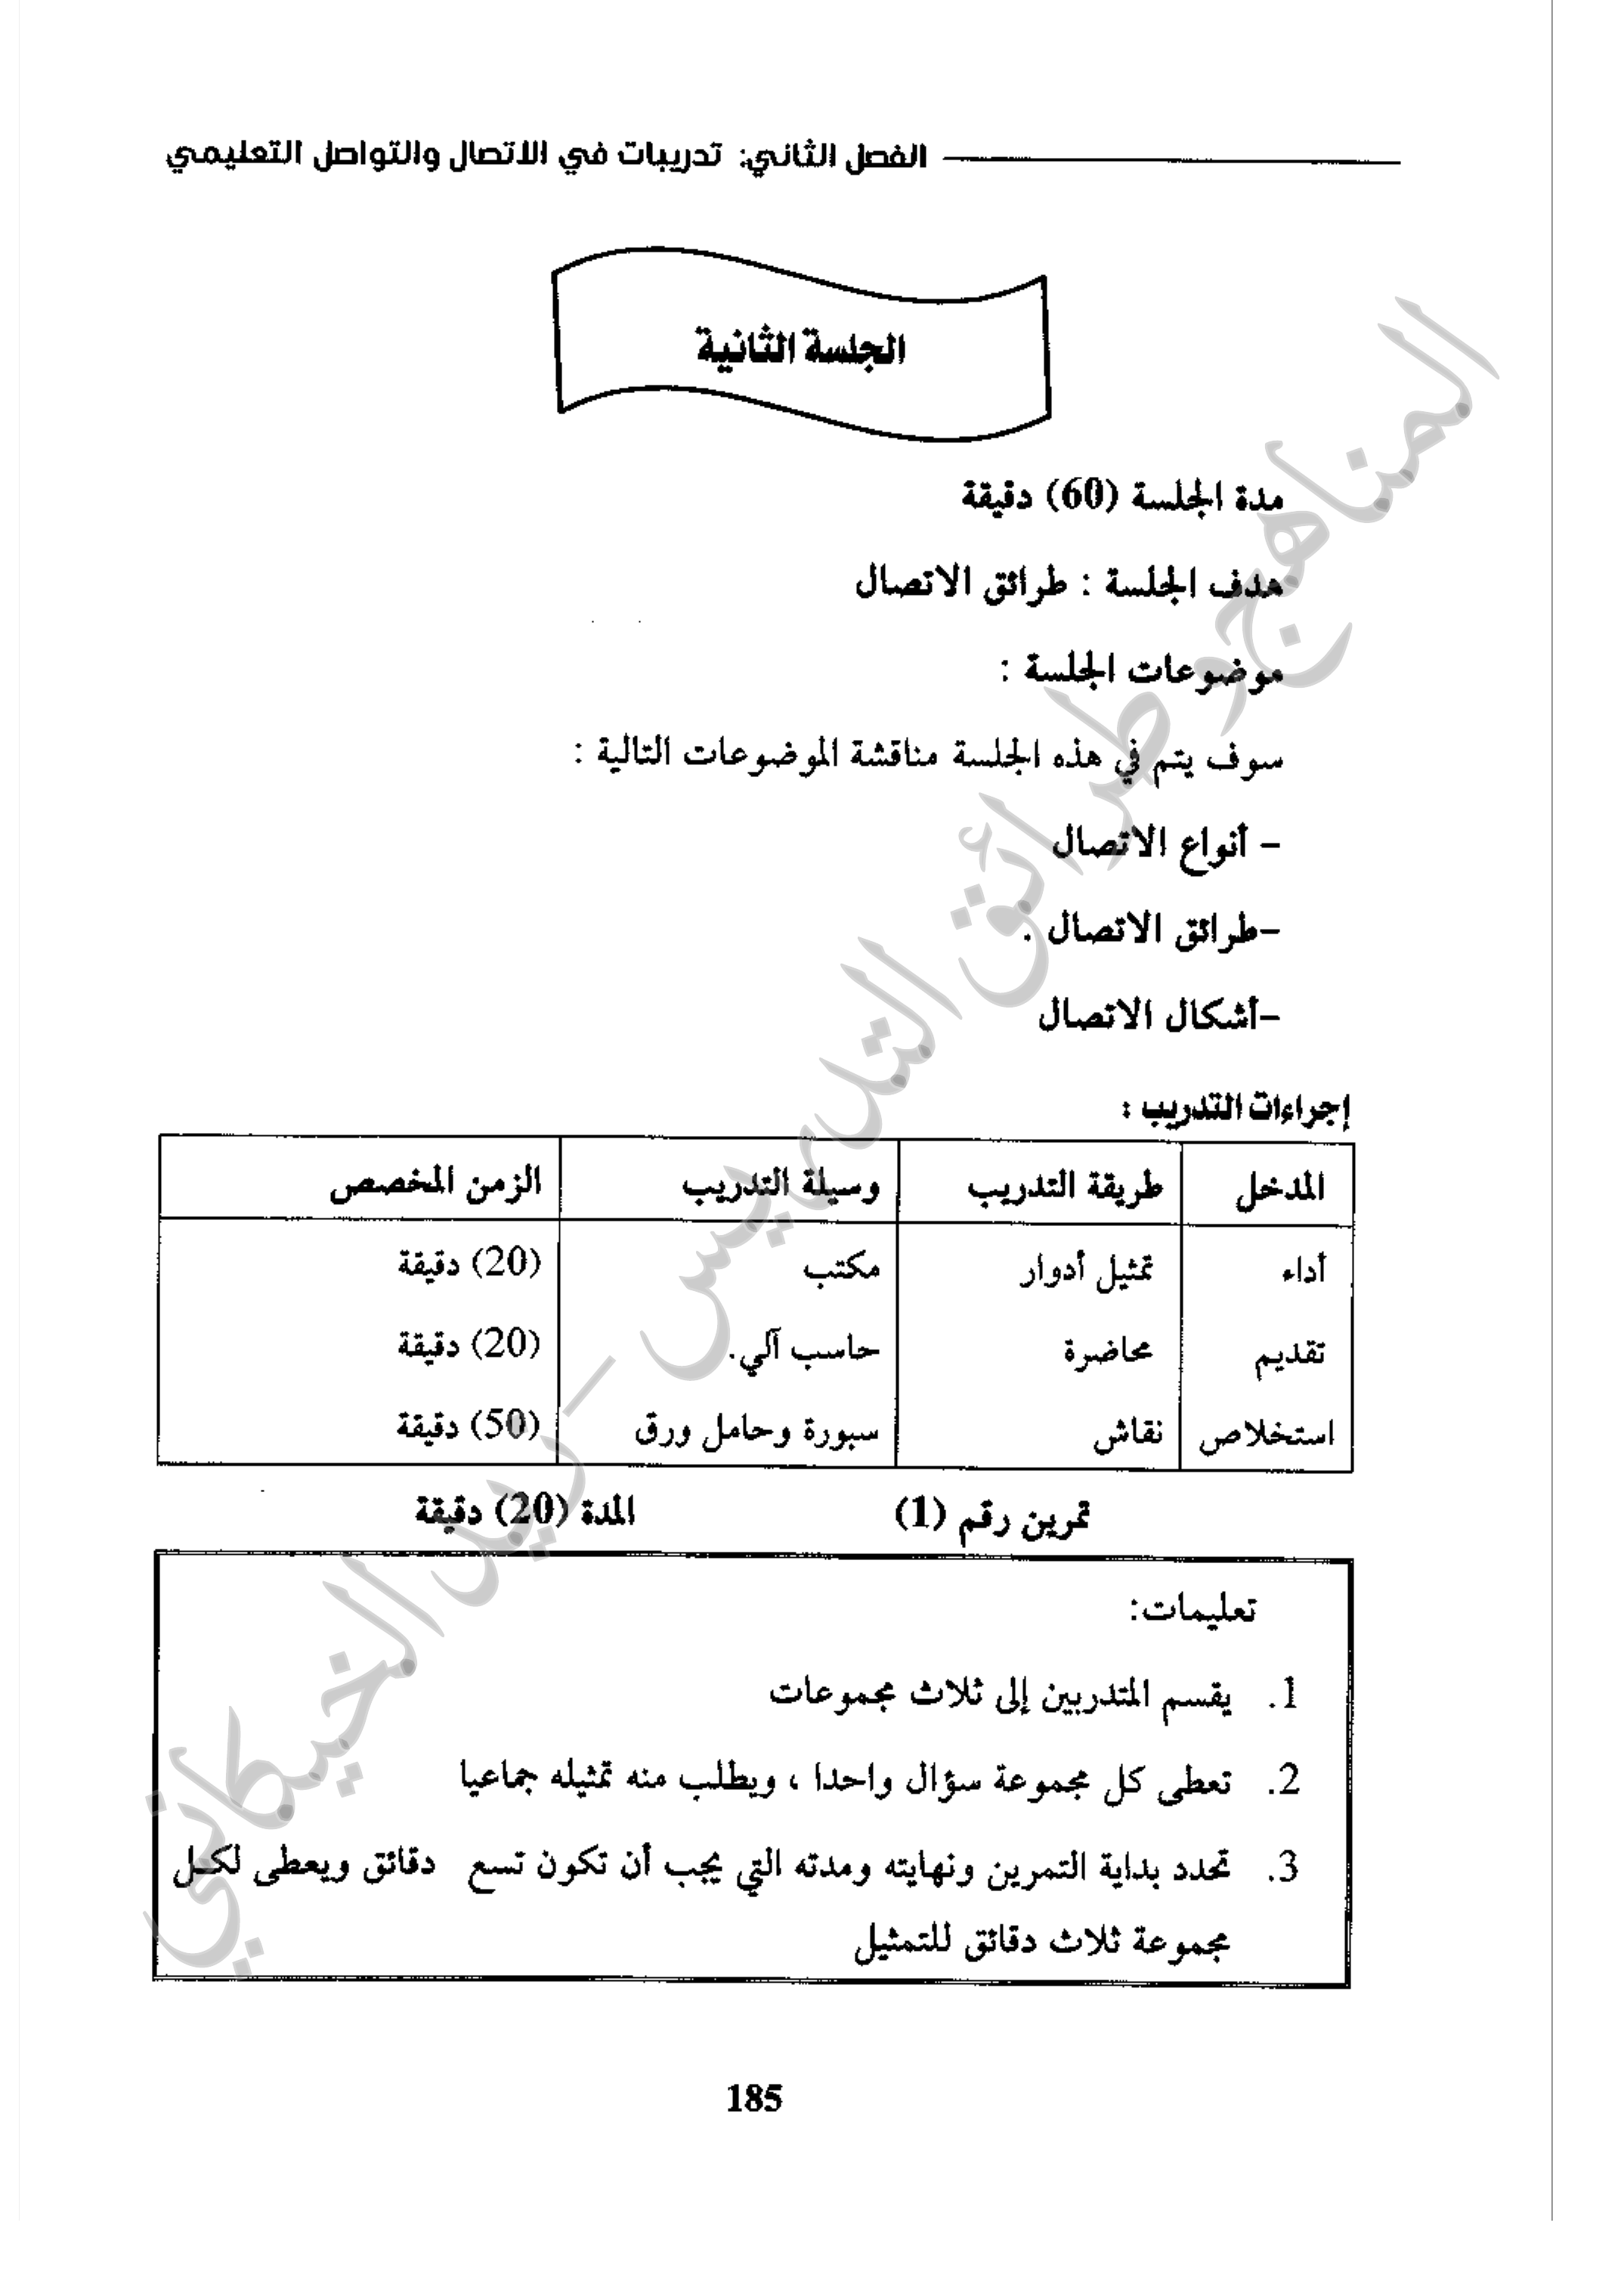 الفصل الثاني: تدريبات في الاتصال والتواصل التعليمي
الجلسة الثانية
مدة الجلسة (60) دقيقة
هدف الجلسة : طرائق الاتصال
موضوعات الجلسة :
سوف يتم في هذه الجلسة مناقشة الموضوعات التالية :
– أنواع الاتصال
–طرائق الاتصال .
–أشكال الاتصال
إجراءات التدريب :
المدخل طريقة التدريب وسيلة التدريب الزمن المخصص
أداء تمثيل أدوار مكتب (20) دقيقة
تقديم محاضرة حاسب آلي. (20) دقيقة
استخلاص نقاش سبورة وحامل ورق (50) دقيقة
تمرين رقم (1) المدة (20) دقيقة
تعليمات:
1. يقسم المتدربين إلى ثلاث مجموعات
2. تعطى كل مجموعة سؤال واحدا ، ويطلب منه تمثيله جماعيا
3. تحدد بداية التمرين ونهايته ومدته التي يجب أن تكون تسع دقائق ويعطى لكل
مجموعة ثلاث دقائق للتمثيل
185
المناهج وطرائق التدريس – ريد الخيكاني